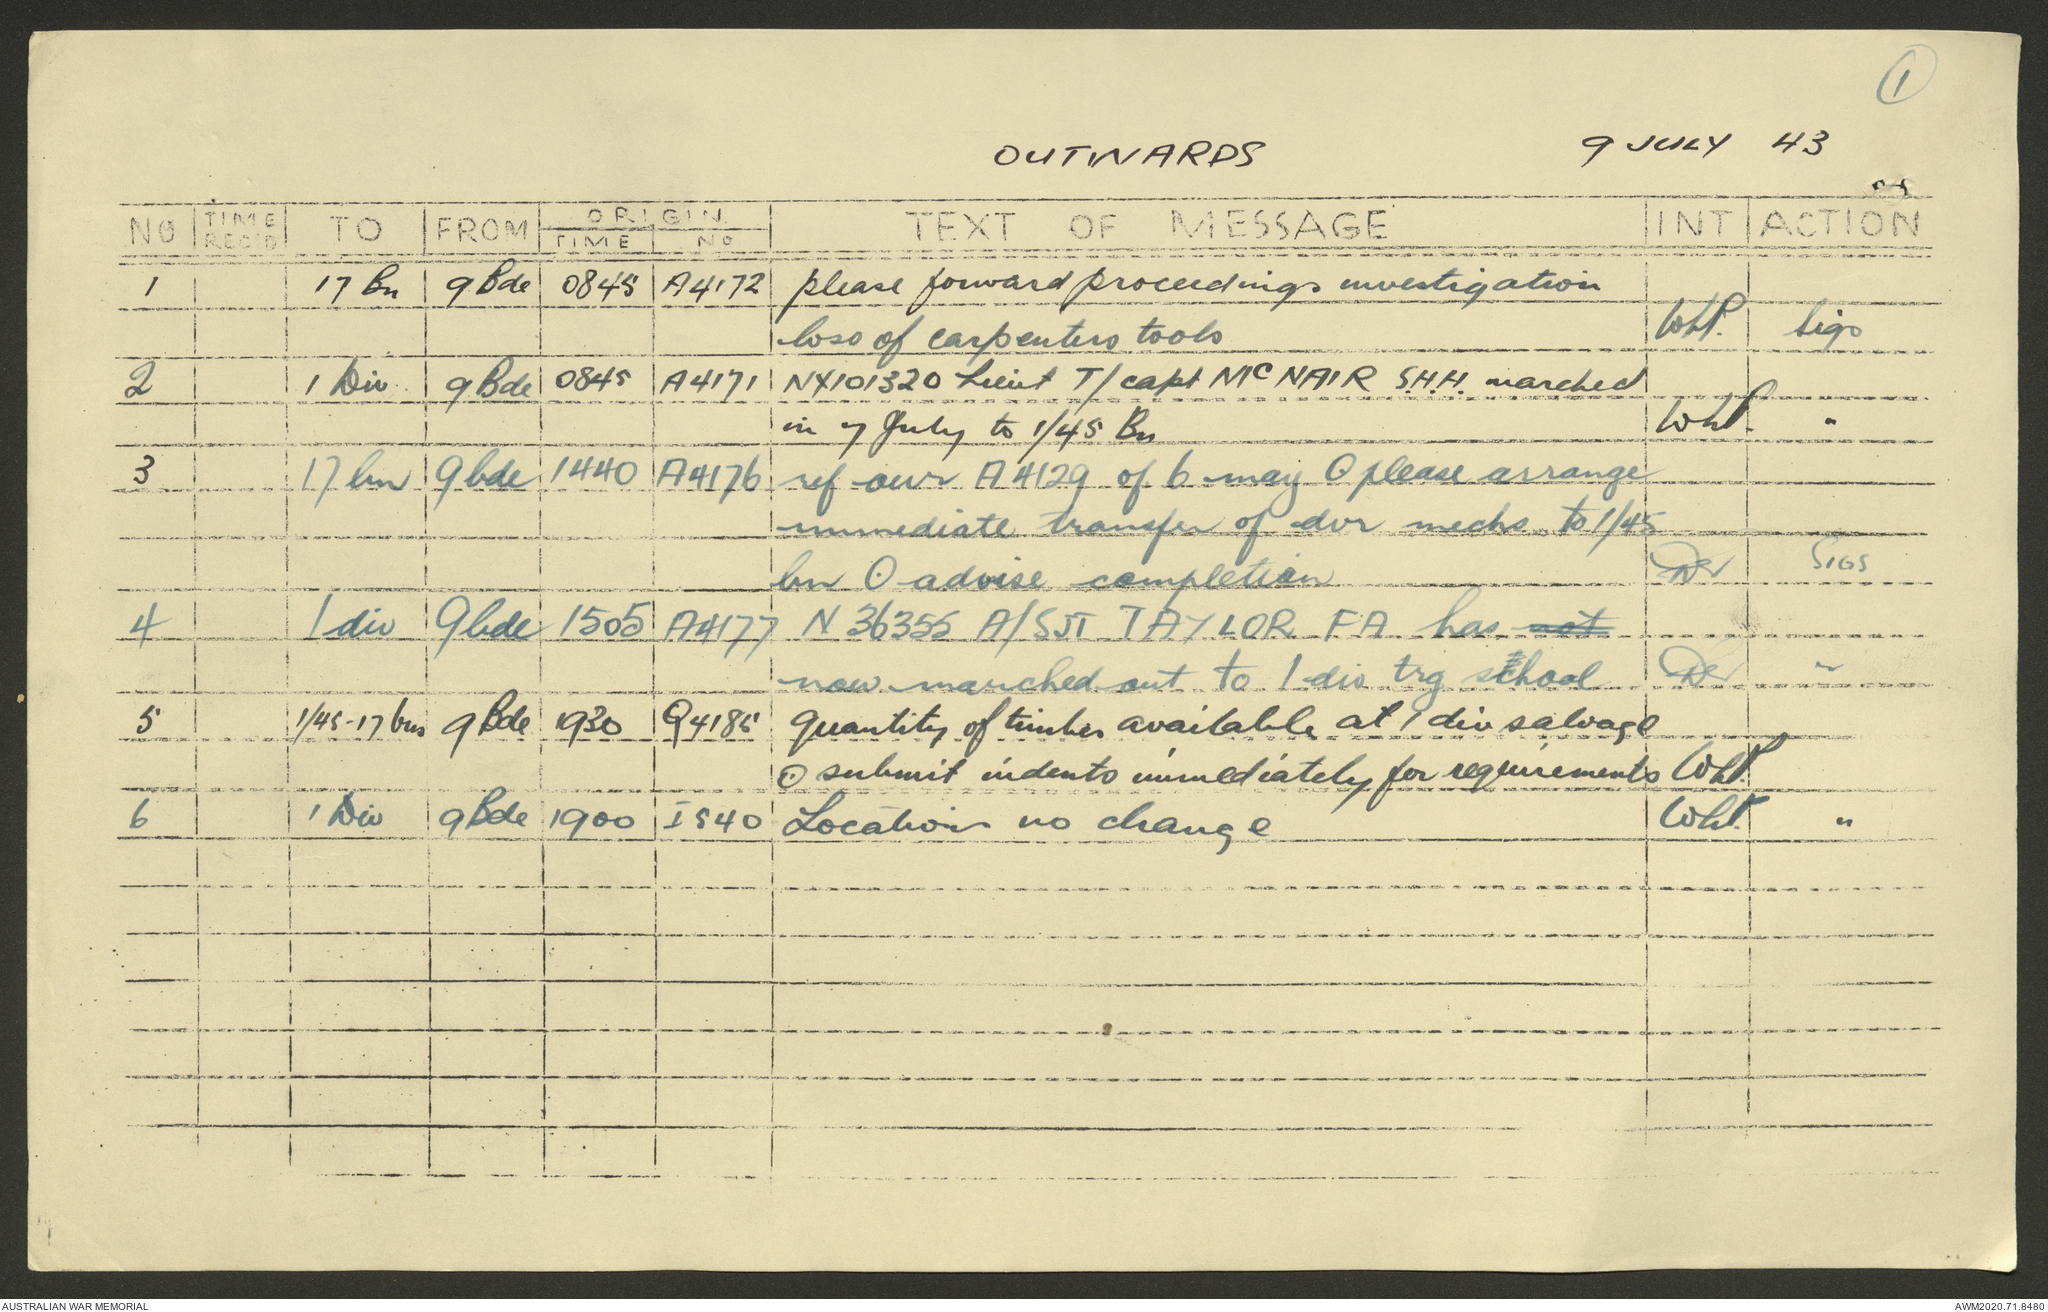 1
OUTWARDS 9 JULY 43
NO TIME REC'D TO FROM ORIGIN TIME NO TEXT OF MESSAGE INT ACTION
1 17 Bn 9 Bde 0845 A4172 please forward proceedings investigation
loss of carpenters tools WhP. Sigs
2 1 Div 9 Bde 0845 A4171 NX101320 Lieut T/capt McNAIR S.H.H. marched
in 7 July to 1/45 Bn WhP. "
3 17 bn 9 bde 1440 A4176 ref our A4129 of 6 may O please arrange
immediate transfer of dvr mechs to 1/45
bn O advise completion SIGS
4 1 div 9 bde 1505 A4177 N 36355 A/SJT TAYLOR FA has not
now marched out to 1 div trg school "
5 1/45-17 bns 9 Bde 1930 Q4185 quantity of timber available at 1 div salvage
O submit indents immediately for requirements WhP.
6 1 Div 9 Bde 1900 I540 Locations no change WhP. "
AUSTRALIAN WAR MEMORIAL AWM2020.71.8480